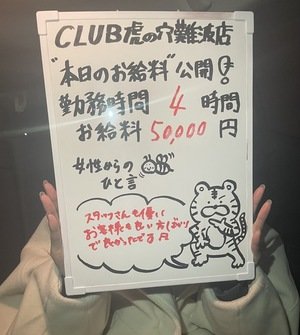 CLUB虎の穴難波店
"本日のお給料"公開!
勤務時間 4 時間
お給料 50,000 円
女性からの
ひと言
スタッフさんも優しい
お客様も良い方ばかり
で良かったです